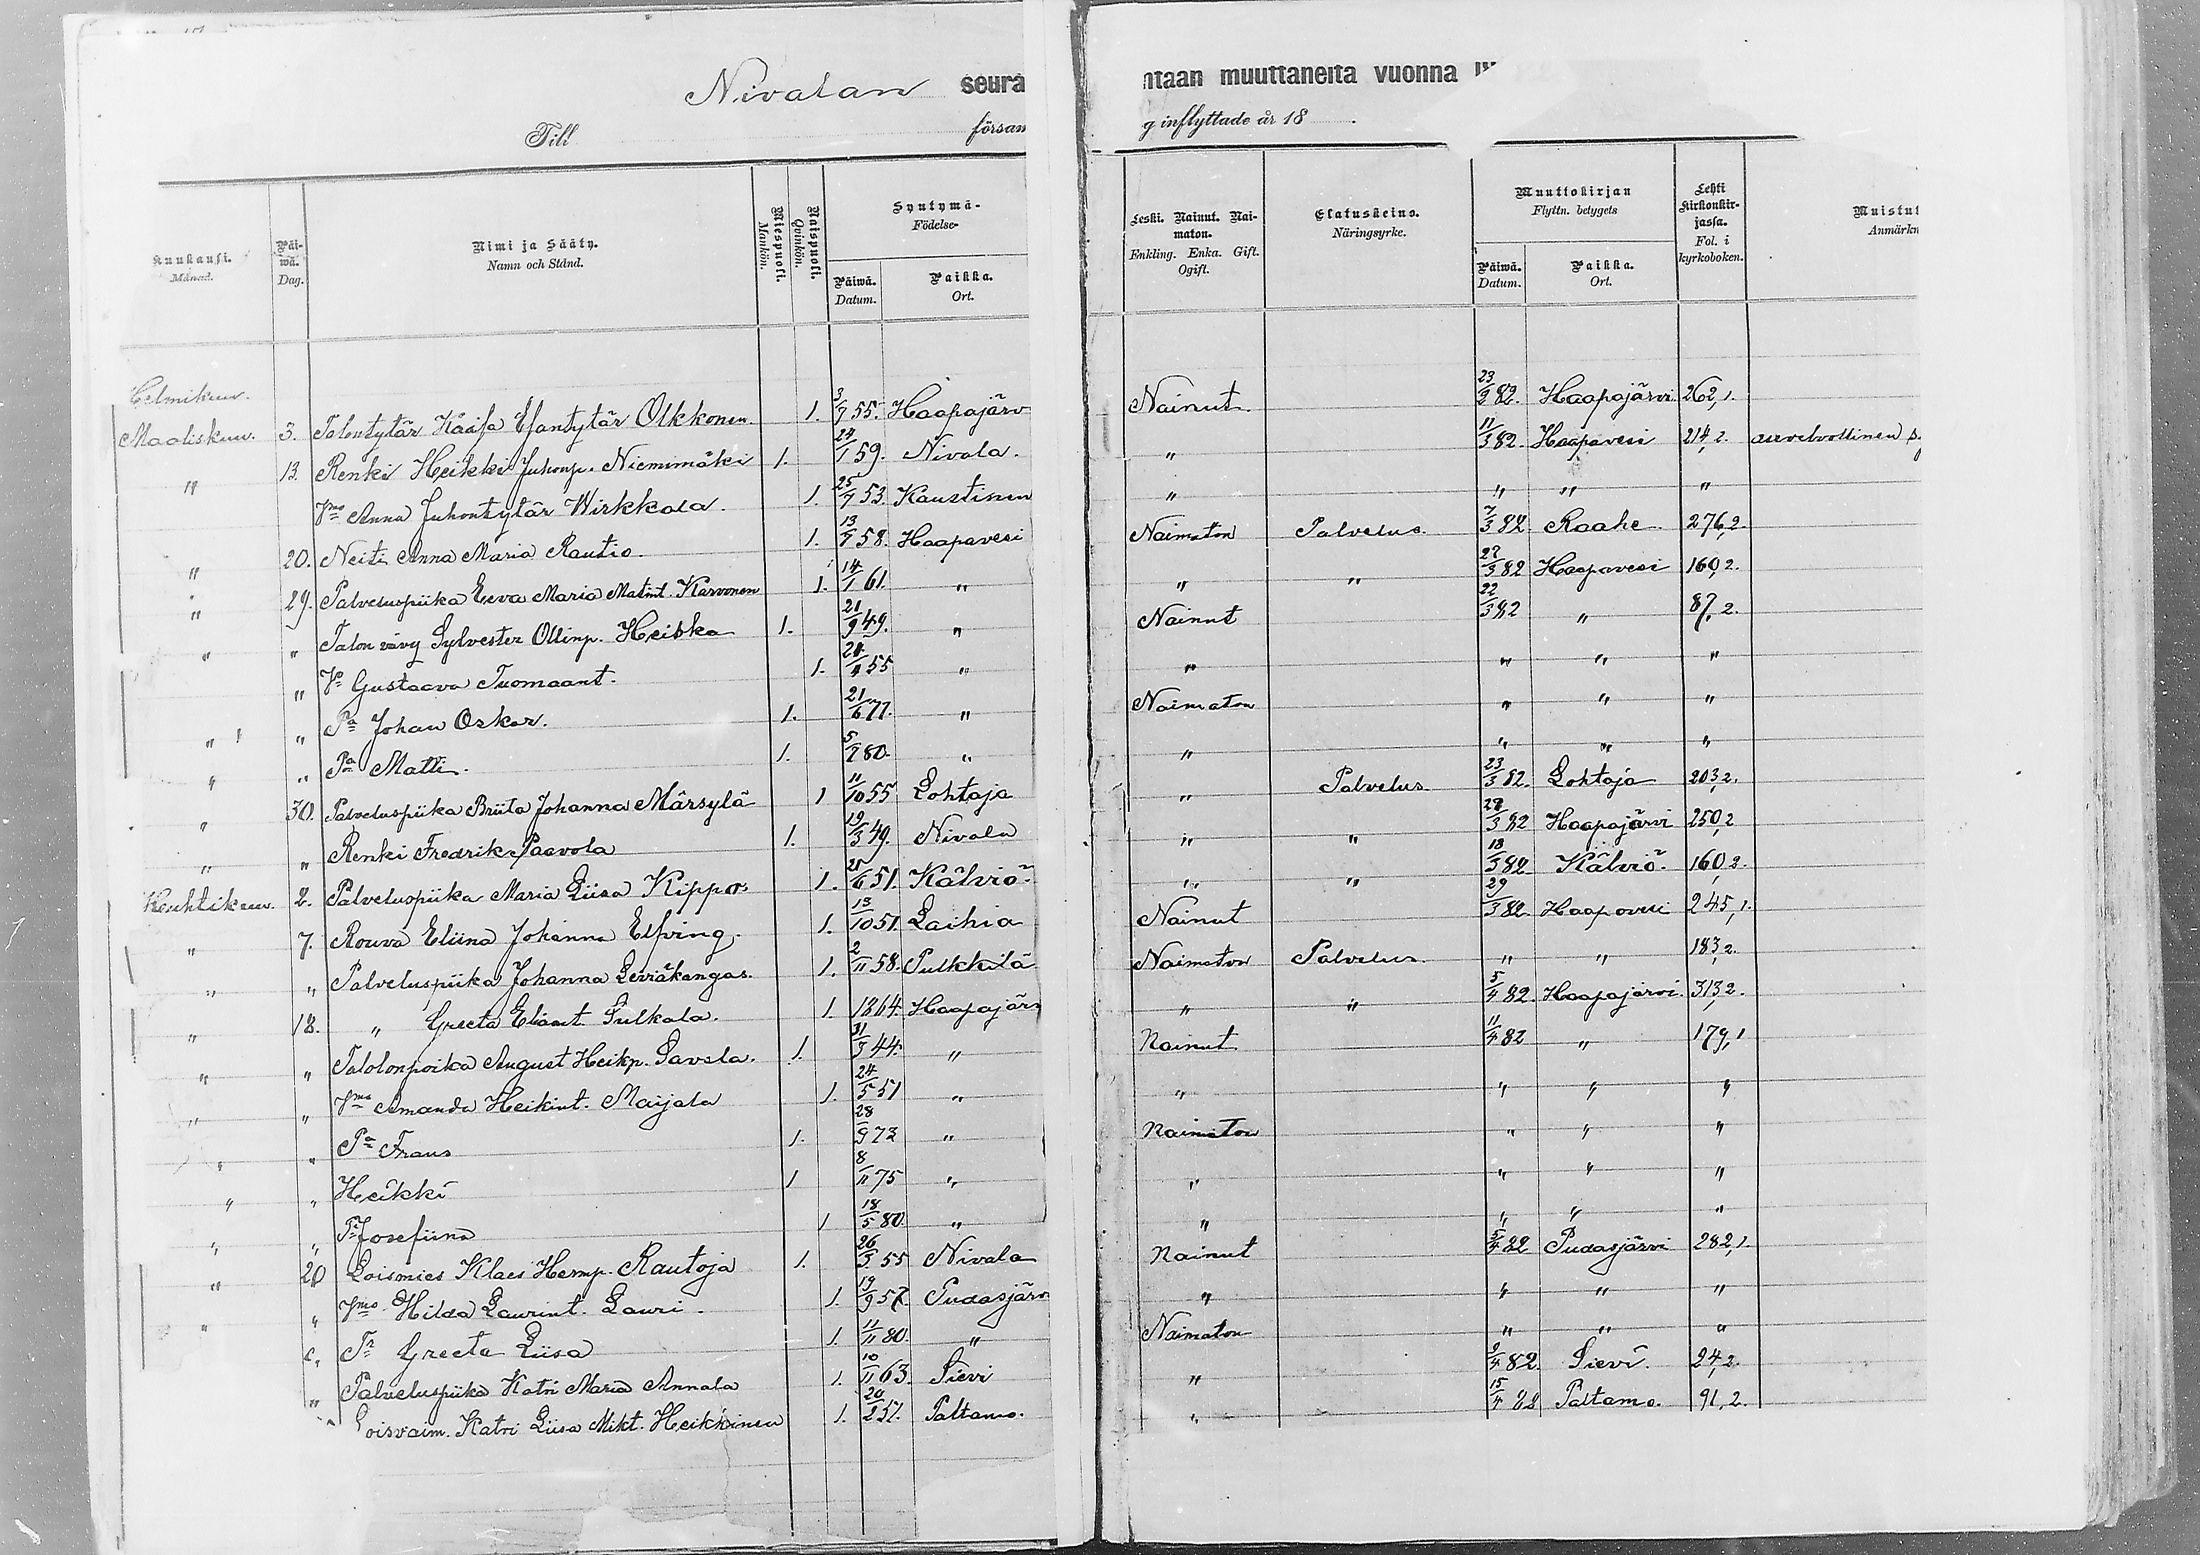 Nivalan seura ntaan muuttaneita vuonna
Till försam g inflyttade år 18
Kuukausi. Månad. Päiwä. Dag. Nimi ja Sääty. Namn och Stånd. Miespuoli. Mankön. Naispuoli. Qvinkön. Syntymä- Födelse- Päiwä. Datum. Paikka. Ort. Leski. Nainut. Naimaton. Enkling. Enka. Gift. Ogift. Elatuskeino. Näringsyrke. Muuttokirjan Flyttn. betygets Päiwä. Datum. Paikka. Ort. Lehti kirkonkirjassa. Fol. i kyrkoboken. Muistut Anmärkn
Helmikuu.
Maaliskuu. 3. Talontytär Kaisa Esantytär Olkkonen. 1. 3/7 55. Haapajärv Nainut 23/2 82. Haapajärvi 262,1.
" 13. Renki Heikki Juhonp. Niemimäki 1. 24/1 59. Nivala. " 11/3 82. Haapavesi 214,2. asevelvollinen
Vmo Anna Juhontytär Wirkkala. 1. 25/7 53. Kaustinen " " " "
" 20. Neiti Anna Maria Rautio. 1. 13/7 58. Haapavesi Naimaton Palvelus. 7/3 82. Raahe 276,2.
" 29. Palveluspiika Eeva Maria Matint. Karvonen 1. 14/1 61. " " " 27/3 82 Haapavesi 160,2.
" " Talon vävy Sylvester Ollinp. Heiska 1. 21/9 49. " Nainut 22/3 82 " 87,2.
" Vo Gustaava Tuomaant. 1. 55 " " " " "
" " Pa Johan Oskar. 1. 21/6 77. " Naimaton " " "
" " Pa Matti. 1. 5/9 80. " " " " "
" 30. Palveluspiika Briita Johanna Märsylä 1 11/10 55 Lohtaja " Palvelus 23/3 82. Lohtaja 203,2.
" " Renki Fredrik Paavola 1. 19/3 49. Nivala " " 82 Haapajärvi 250,2
Huhtikuu. 2. Palveluspiika Maria Liisa Kippo 1. 25/6 51. Kälviö. " " 18/3 82. Kälviö. 160,2.
" 7. Rouva Eliina Johanna Elfving. 1. 13/10 51. Laihia Nainut 29/3 82. Haapavesi 245,1.
" " Palveluspiika Johanna Leväkangas. 1. 2/11 58. Pulkkila Naimaton Palvelus " " 183,2.
" 18. " Greeta Eliaant. Sulkala. 1. 1864. Haapajärv " " 5/4 82. Haapajärvi. 313,2.
" " Talolonpoika August Heikp. Savela. 1. 31/3 44. " Nainut 11/4 82 " 179,1
" " Vmo Amanda Heikint. Maijala 1. 24/5 51 " " " " "
" " Pa Frans 1. 28/9 73 " Naimaton " " "
" " Heikki 1 8/11 75 " " " " "
" " Tr Josefiina 1 18/5 80. " " " " "
" 20 Loismies Klaes Hermp. Rautoja 1. 26/3 55 Nivala Nainut 5/4 82 Pudasjärvi 282,1.
" " Vmo. Hilda Laurint. Lauri. 1. 19/9 57. Pudasjärv " " " "
Tr Greeta Liisa 1. 11/11 80. " Naimaton " " "
" Palveluspiika Katri Maria Annala 1. 10/11 63. Sievi " 9/4 82. Sievi. 24,2.
Loisvaim. Katri Liisa Mikt. Heikkinen 1. 20/2 57. Paltamo. " 15/4 82 Paltamo. 91,2.